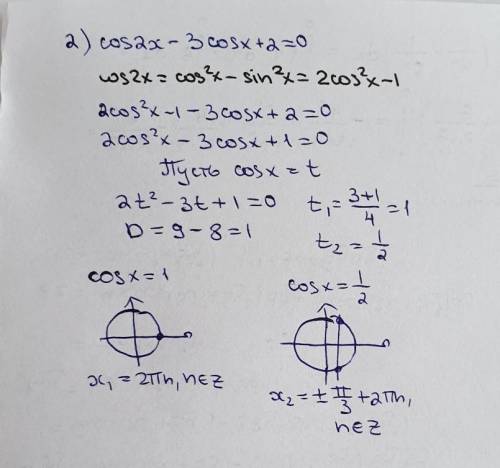 2) cos2x - 3cosx + 2 = 0
cos2x = cos²x - sin²x = 2cos²x - 1
2cos²x - 1 - 3cosx + 2 = 0
2cos²x - 3cosx + 1 = 0
Пусть cosx = t
2t² - 3t + 1 = 0
D = 9 - 8 = 1
t₁ = (3+1)/4 = 1
t₂ = 1/2
cosx = 1
x₁ = 2πn, n∈Z
cosx = 1/2
x₂ = ± π/3 + 2πn,
n∈Z